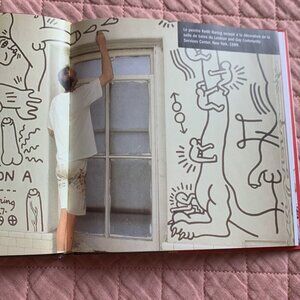 Le peintre Keith Haring occupé à la décoration de la
salle de bains du Lesbian and Gay Community
Services Center, New York, 1989.
ON A
ring